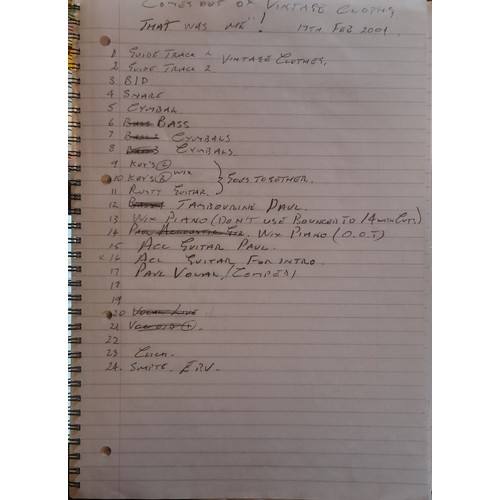 COMES OUT OF VINTAGE CLOTHS
THAT WAS ME"! 19TH FEB 2001.
1 GUIDE TRACK 1
2 GUIDE TRACK 2 VINTAGE CLOTHES.
3 B/D
4 SNARE
5 CYMBAL
6 BASS
7 CYMBALS
8 CYMBALS
9 KEY'S (L)
10 KEY'S (R) WIX
11 RUSTY GUITAR. GOES TOGETHER.
12 TAMBOURINE PAUL.
13 WIX PIANO (DON'T USE BOUNCED TO 14 WITH CUTS)
14 WIX PIANO (O.O.T)
15 ACC GUITAR PAUL.
x 16 ACL GUITAR FOR INTRO.
17 PAUL VOCAL (COMPED)
17
19
20 VOCAL LIVE
21
22
23 CLICK.
24. SMPTE.